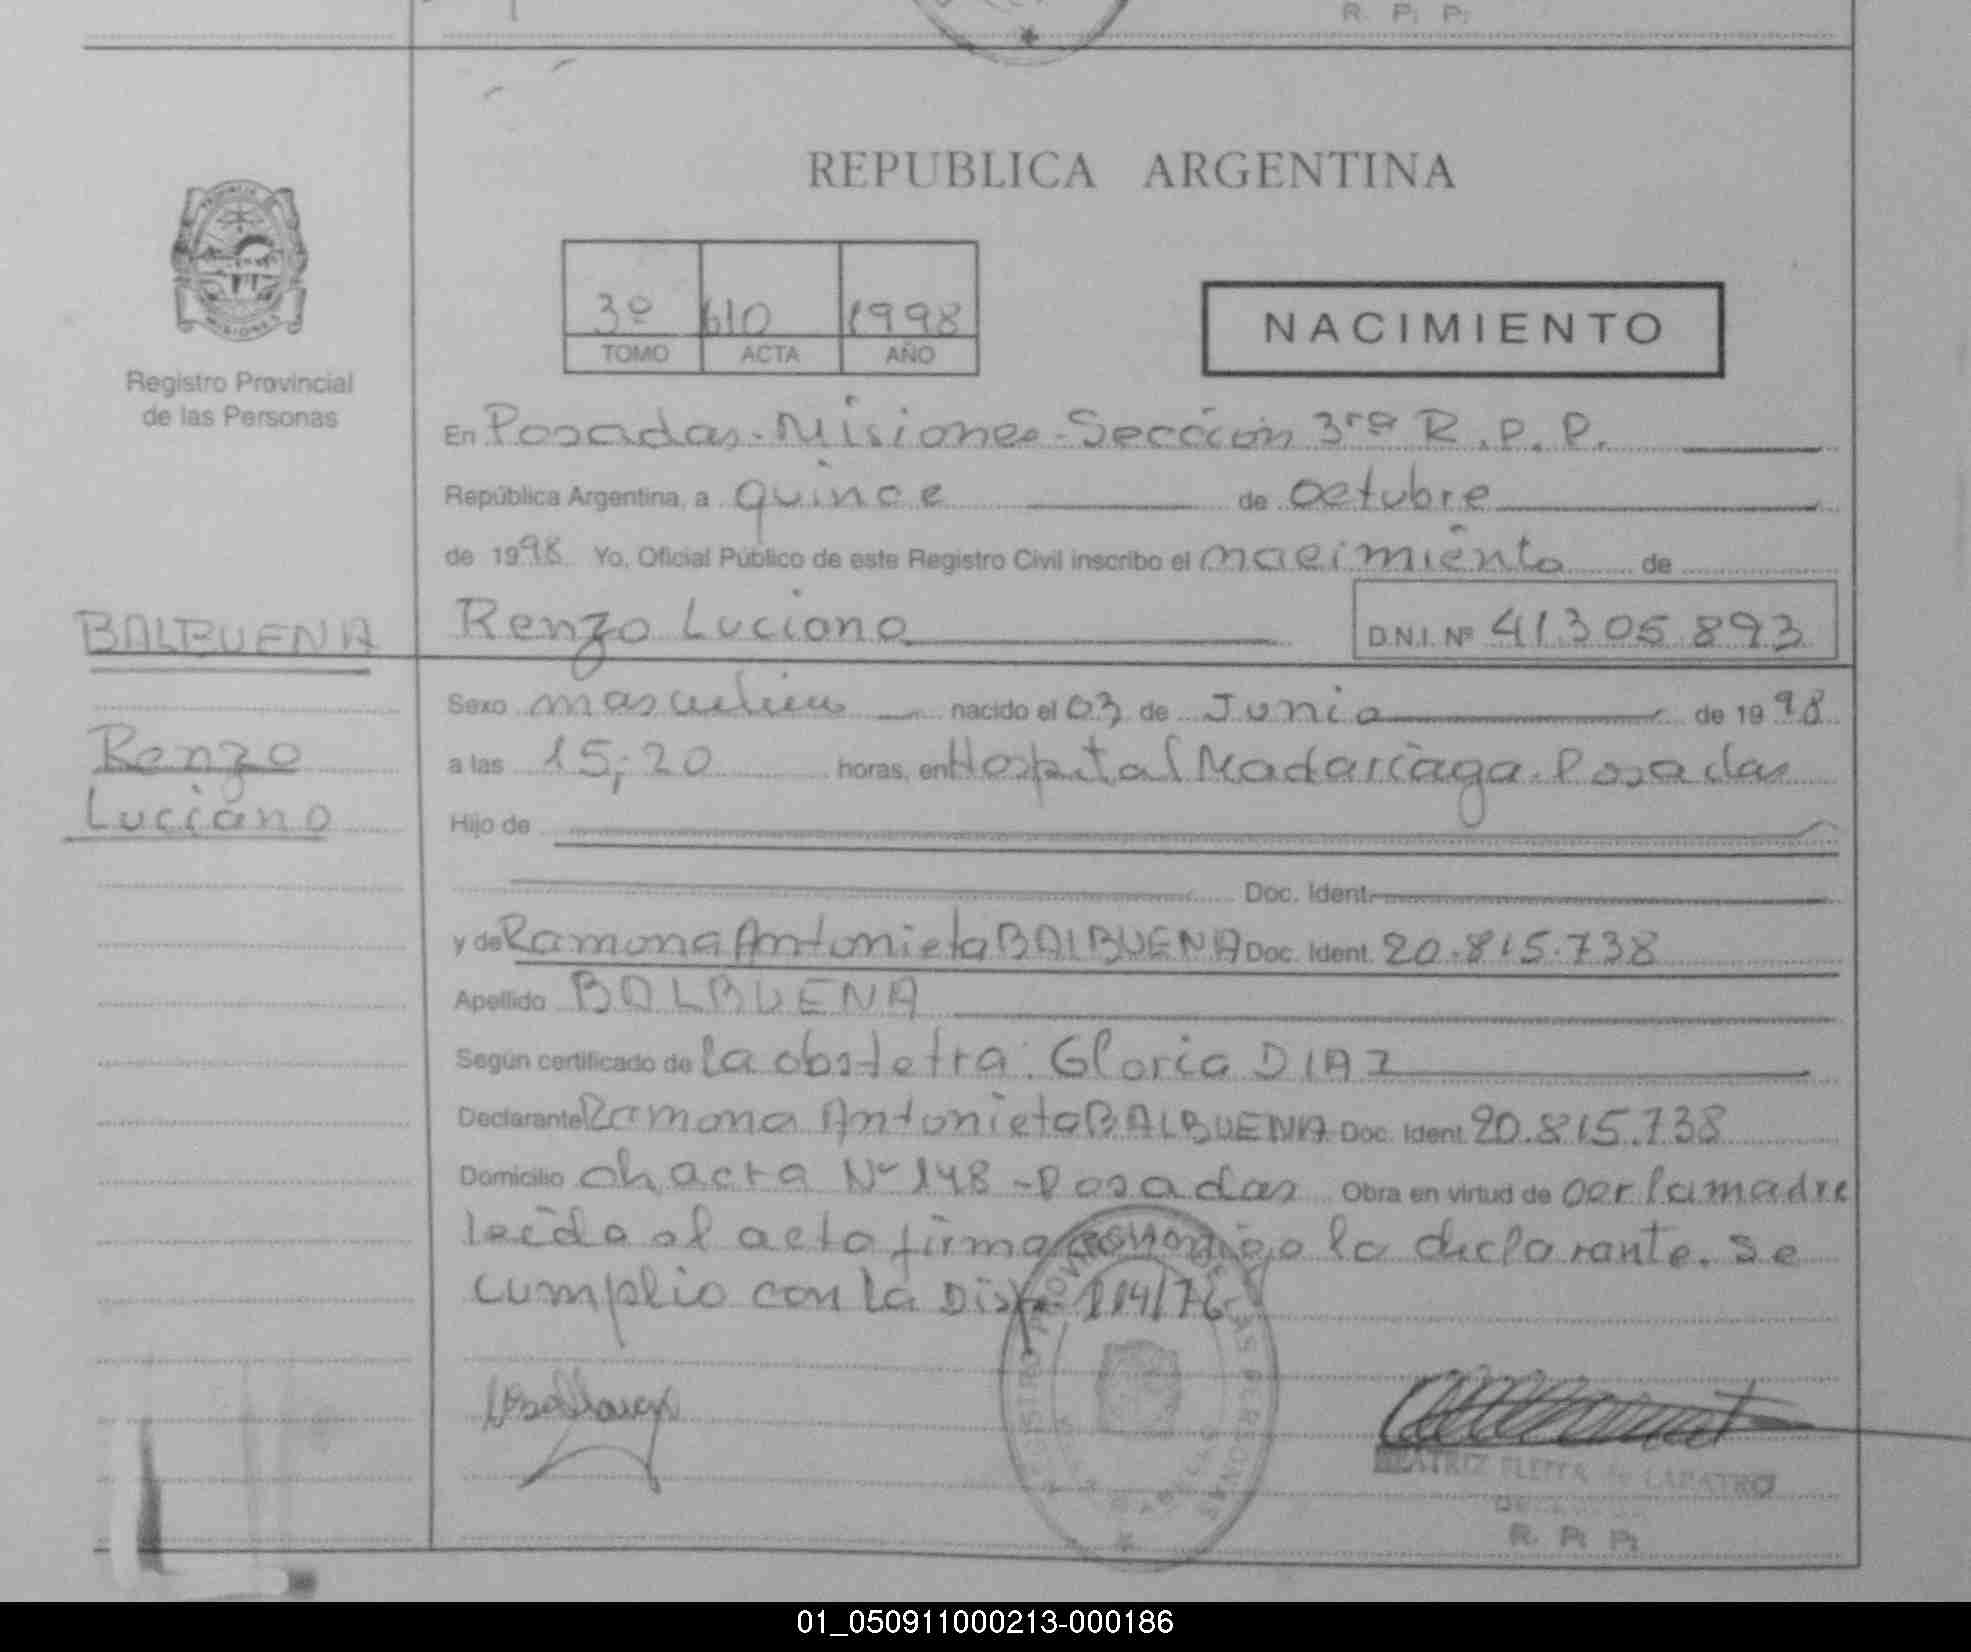 R. P. P.
REPUBLICA ARGENTINA
MISIONES
Registro Provincial
de las Personas
3º 610 1998
TOMO ACTA AÑO
NACIMIENTO
En Posadas-Misiones-Sección 3ra R.P.P.
República Argentina, a quince de Octubre
de 1998 Yo, Oficial Público de este Registro Civil inscribo el nacimiento de
Renzo Luciano D.N.I. Nº 41305893
BALBUENA
Renzo
Luciano
Sexo masculino nacido el 03 de Junio de 1998
a las 15,20 horas, en Hospital Madariaga. Posadas
Hijo de
Doc. Ident.
y de Ramona Antonieta BALBUENA Doc. Ident. 20.815.738
Apellido BALBUENA
Según certificado de la obstetra: Gloria DIAZ
Declarante Ramona Antonieta BALBUENA Doc. Ident. 20.815.738
Domicilio chacra Nº 148-Posadas Obra en virtud de ser la madre
leido el acta firma conmigo la declarante. Se
cumplio con la Disp. 114/76
BEATRIZ de
R. P. P.
01_050911000213-000186